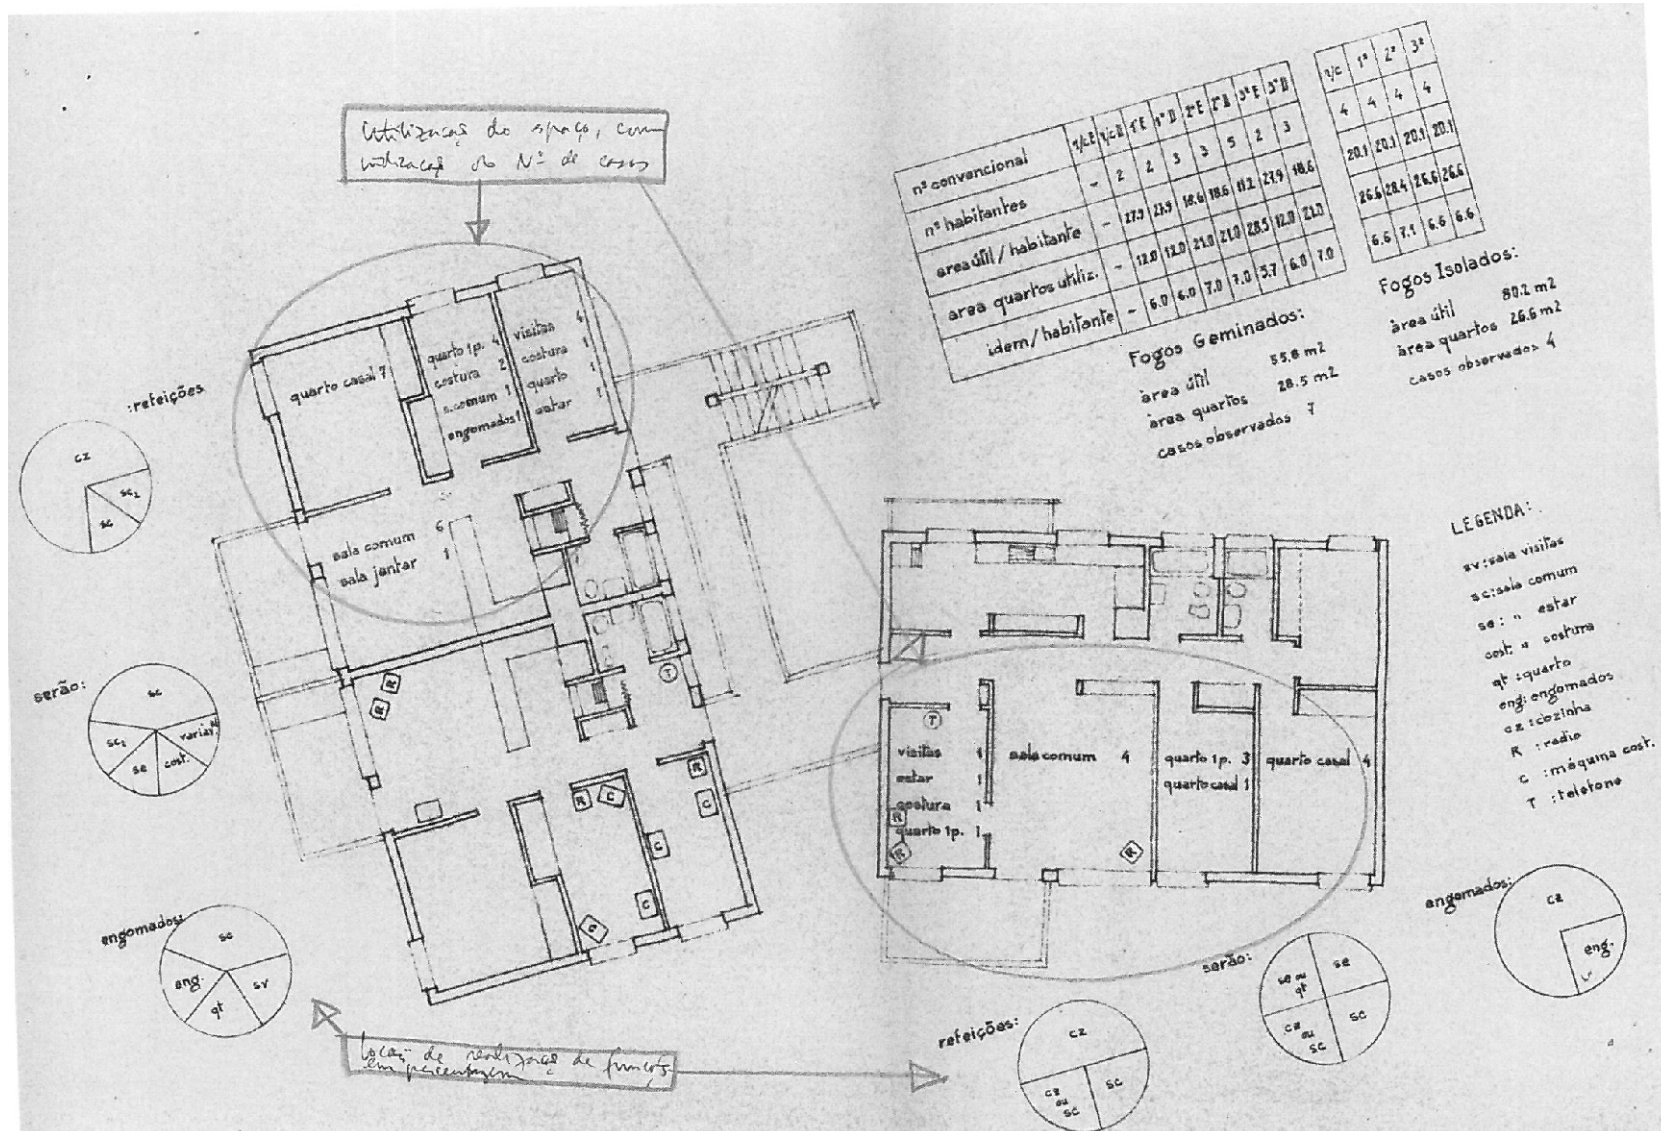 Utilização do espaço, com
indicação do Nº de casos
nº convencional r/cE r/cD 1ºE 1ºD 2ºE 2ºD 3ºE 3ºD
nº habitantes - 2 2 3 3 5 2 3
area útil / habitante - 27.9 27.9 18.6 18.6 11.2 27.9 18.6
area quartos utiliz. - 12.0 12.0 21.0 21.0 28.5 12.0 21.0
idem / habitante - 6.0 6.0 7.0 7.0 5.7 6.0 7.0
r/c 1º 2º 3º
4 4 4 4
20.1 20.1 20.1 20.1
26.6 28.4 26.6 26.6
6.6 7.1 6.6 6.6
Fogos Geminados:
àrea útil 55.8 m2
àrea quartos 28.5 m2
casos observados 7
Fogos Isolados:
àrea útil 80.2 m2
àrea quartos 26.6 m2
casos observados 4
quarto casal 7
quarto 1p. 4
costura 2
s.comum 1
engomados 1
visitas 4
costura 1
quarto 1
estar 1
sala comum 6
sala jantar 1
:refeições
cz
sc2
sc
serão:
sc
variável
cost.
se
sc2
engomados:
sc
sv
qt
eng.
R
R
T
R
C
R
C
C
C
C
T
visitas 1
estar 1
costura 1
quarto 1p. 1
R
R
sala comum 4
R
quarto 1p. 3
quarto casal 1
quarto casal 4
LEGENDA:
sv:sala visitas
sc:sala comum
se: " estar
cost. " costura
qt :quarto
eng:engomados
cz :cozinha
R : radio
C :máquina cost.
T :telefone
engomados:
cz
eng.
serão:
se ou qt
se
cz ou sc
sc
refeições:
cz
cz ou sc
sc
locais de realização de funções
em percentagem